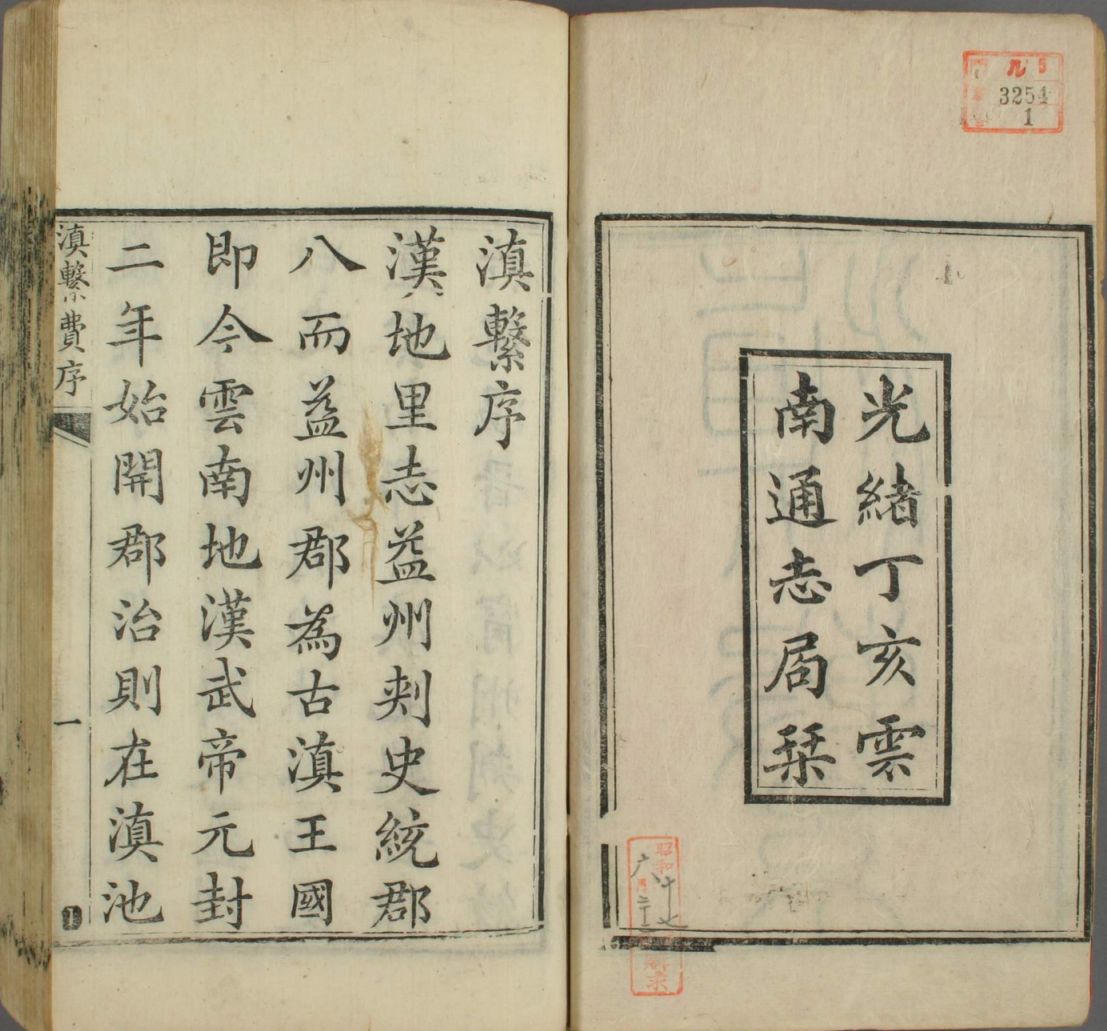 3254
1
光緒丁亥雲
南通志局栞
昭和
六
十七
滇繫序
漢地里志益州刾史統郡
八而益州郡為古滇王國
即今雲南地漢武帝元封
二年始開郡治則在滇池
滇繫費序
一